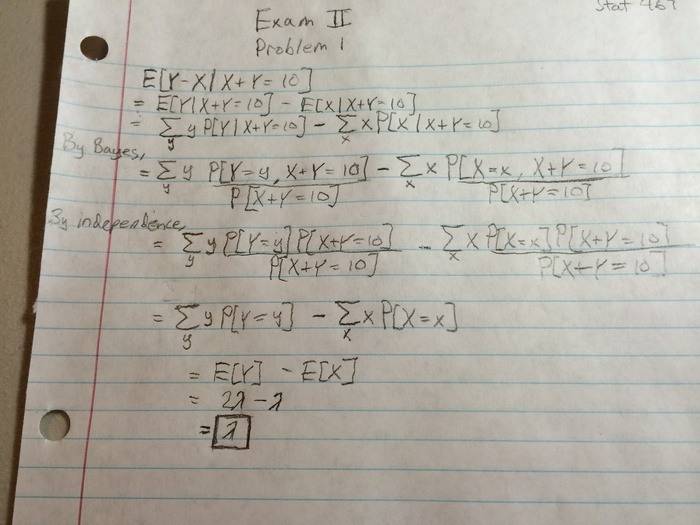 Stat 467
Exam II
Problem 1
E[Y-X|X+Y=10]
= E[Y|X+Y=10] - E[X|X+Y=10]
= ∑_y y P[Y|X+Y=10] - ∑_x x P[X|X+Y=10]
By Bayes,
= ∑_y y P[Y=y, X+Y=10] / P[X+Y=10] - ∑_x x P[X=x, X+Y=10] / P[X+Y=10]
By independence,
= ∑_y y P[Y=y] P[X+Y=10] / P[X+Y=10] - ∑_x x P[X=x] P[X+Y=10] / P[X+Y=10]
= ∑_y y P[Y=y] - ∑_x x P[X=x]
= E[Y] - E[X]
= 2λ - λ
= λ